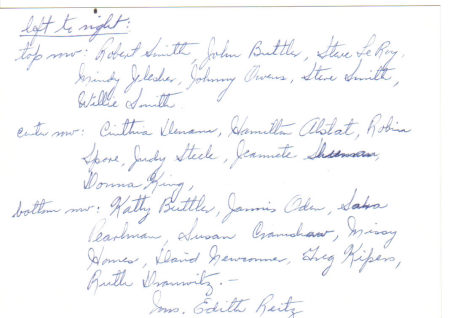 left to right:
top row: Robert Smith, John Buttler, Steve Le Roy,
Mindy Jelesher, Johnny Owens, Steve Smith,
Willie Smith.
center row: Cinthia Denans, Hamilton Alstat, Robin
Spore, Judy Steele, Jeannete
Donna King,
bottom row: Kathy Buttler, Jannis Oden, Sara
Pearlman, Susan Cranshaw, Missy
Homes, David Newconner, Greg Kipers,
Ruth
Mrs. Edith Reitz